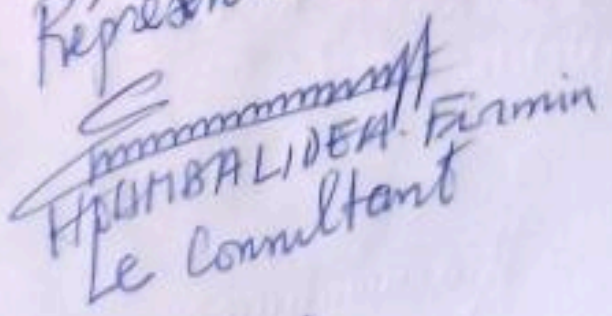 HOUMBALIDEA Firmin
Le Consultant